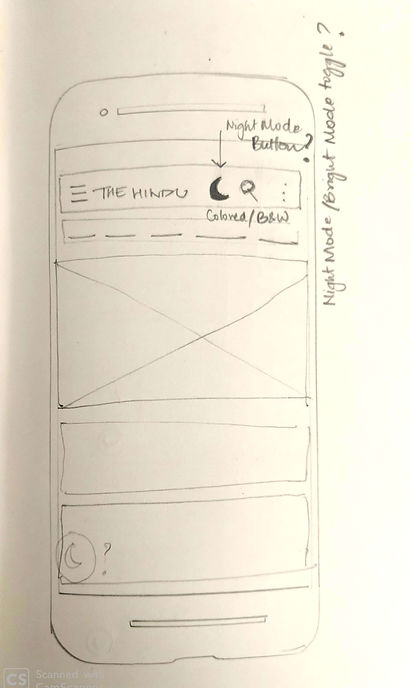 Night Mode
Button?
THE HINDU
Colored/B&W
?
Night Mode/Bright Mode toggle?
CS
Scanned with
CamScanner